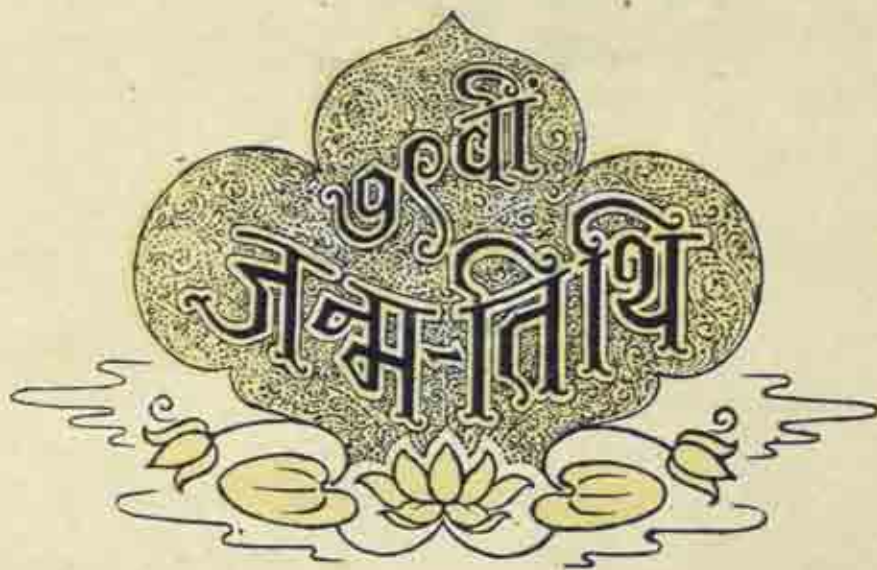 ७१वीं
जन्म-तिथि